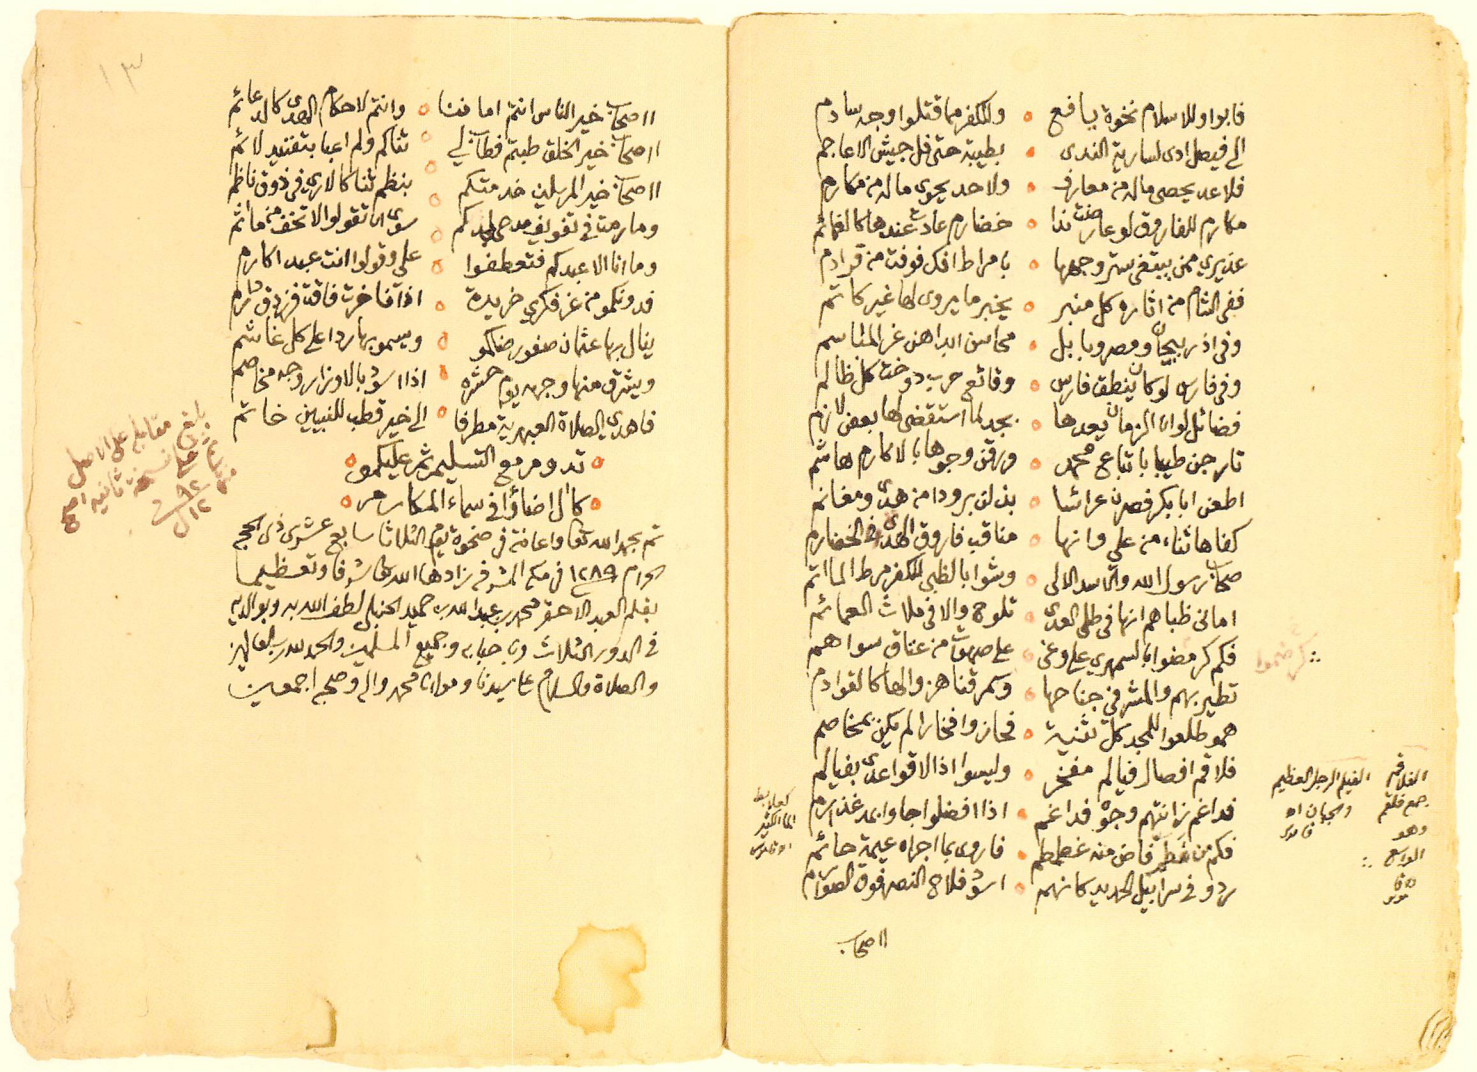 فابوا وللاسلام نخوة يافع ○ وللكفر مما قتلوا وجه سادم
الى فيصل ادى لسارية الندى ○ بطيبة حتى فل جيش الاعاجم
فلا عد يحصى ماله من معارف ○ ولا حد يحوى ماله من مكارم
مكارم للفاروق لو عارضت ندا ○ خضارم عادت عندها كالغمائم
عذيري ممن يبتغى ستر وجهها ○ بامراط افك فوفت من قرادم
ففى الشام من اثاره كل منبر ○ يخبر ما يروى لها غير كاتم
وفى اذربيجان ومصر وبابل ○ محاسن ابداهن غر المباسم
وفى فارس لو كان ينطق فارس ○ وقائع حرب دوخت كل ظالم
فضائل لو ان الزمان يعدها ○ بجد لما استقضى لها بعض لازم
تارجن طيبا باتباع محمد ○ ورقن وجوها بالاكارم هاشم
اطعن ابا بكر فصرن عرائسا ○ بذلن برودا من هدى ومغانم
كفاها ثناء من علي وانها ○ مناقب فاروق الهدى في الخضارم
صحاب رسول الله والاسد الالى ○ وشوا بالظبى للكفر مرط الماتم
امانى ظباهم انها في طلى العدى ○ تلوح والا في ملاث العمائم
فكم كر مضوا بالسمهري على وغى ○ على صهوات من عتاق سواهم
تطير بهم والمشرفي جناحها ○ وسمر قنا هز والها كالقوادم
همو طلعوا للمجد كل ثنية ○ فحازوا فخارا لم يكن بمخاصم
فلاقم افصال فيالم مفخر ○ وليسوا اذا لاقوا عدى بفيالم
فداغم زانتهم وجوه فداغم ○ اذا افضلوا جاوا بمد غذارم
فكم من غطم فاض منه غطمطم ○ فاروى بما اجراه عيمة حائم
ردو في سرابيل الحديد كانهم ○ اسود فلاح النصر فوق الصوارم
ااصحاب
الفلاقم
جمع فلقم
وهو
الواسع
الفيلم الرجل العظيم
والجبان اه
قاموس
١٣
ااصحاب خير الناس انتم اماننا ○ وانتم لاحكام الهدى كالدعائم
ااصحاب خير الخلق طبتم فطاب لي ○ ثناكم ولم اعبا بتفنيد لائم
ااصحاب خير المرسلين خدمتكم ○ بنظم ثنا كالاري في ذوق ناظم
وما رمت في تفويف مدحى لمجدكم ○ سوى ان تقولوا لا تخف من ماثم
وما انا الا عبدكم فتعطفوا ○ على وقولوا انت عبد اكارم
فدونكمو من غر فكري خريدة ○ اذا انفاخرت فاقت فرزدق دارم
ينال بها عثمان صفو رضاكمو ○ ويسمو بها ردا على كل غاشم
ويشرق منها وجهه يوم حشره ○ اذا اسود بالاوزار وجه مخاصم
فاهدي الصلاة العبهرية مطرفا ○ الى خير قطب للنبيين خاتم
○ تدوم مع التسليم ثم عليكمو ○
○ كال اضاؤا في سماء المكارم ○
تم بحمد الله تعالى واعانته في ضحوة يوم الثلاثا سابع عشرى ذى الحجة
الحرام ١٢٨٩ في مكة المشرفة زادها الله تعالى شرفا وتعظيما
بقلم العبد الاحقر محمد بن عبدالله بن حميد الحنبلي لطف الله به وبوالديه
في الدور الثلاث وبا حبابه وجميع المسلمين والحمد لله رب العالمين
والصلاة والسلام على سيدنا ومولانا محمد واله وصحبه اجمعين
بلغ مقابلة على الاصل